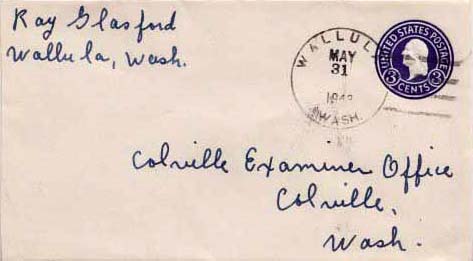 Ray Glasford
Wallula, Wash.
WALLULA
MAY
31
WASH.
UNITED STATES POSTAGE
3 CENTS 3
Colville Examiner Office
Colville,
Wash.